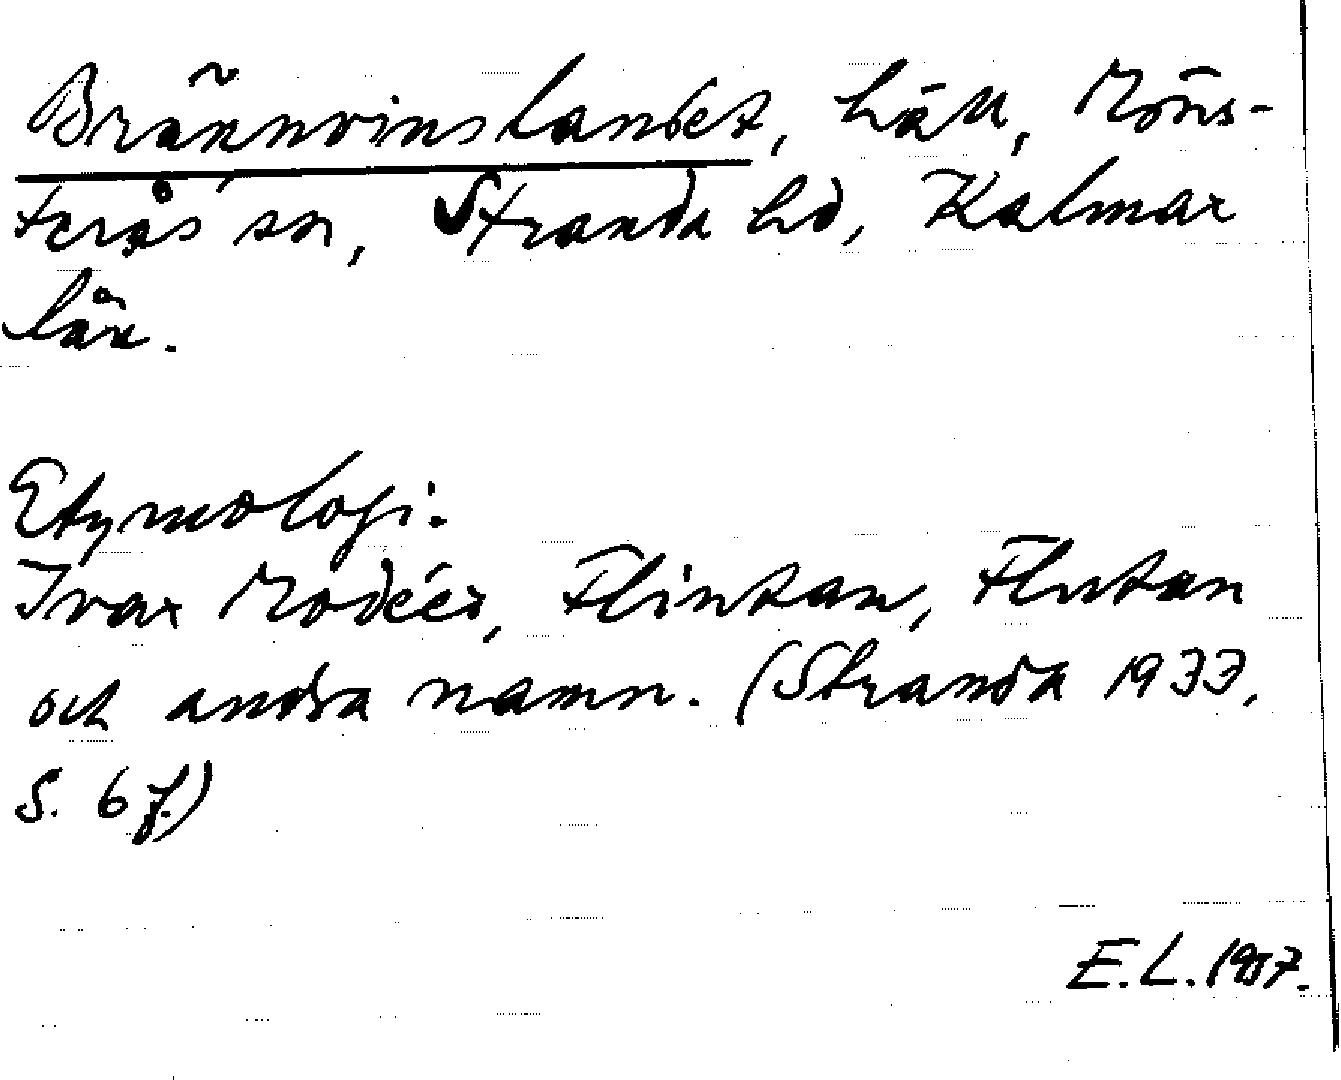 Brännvinslandet, häll, Möns-
terås sn, Stranda hd, Kalmar
län.
Etymologi:
Ivar Modéer, Flintan, Flutan
och andra namn. (Stranda 1933,
s. 6 f.)
E.L.